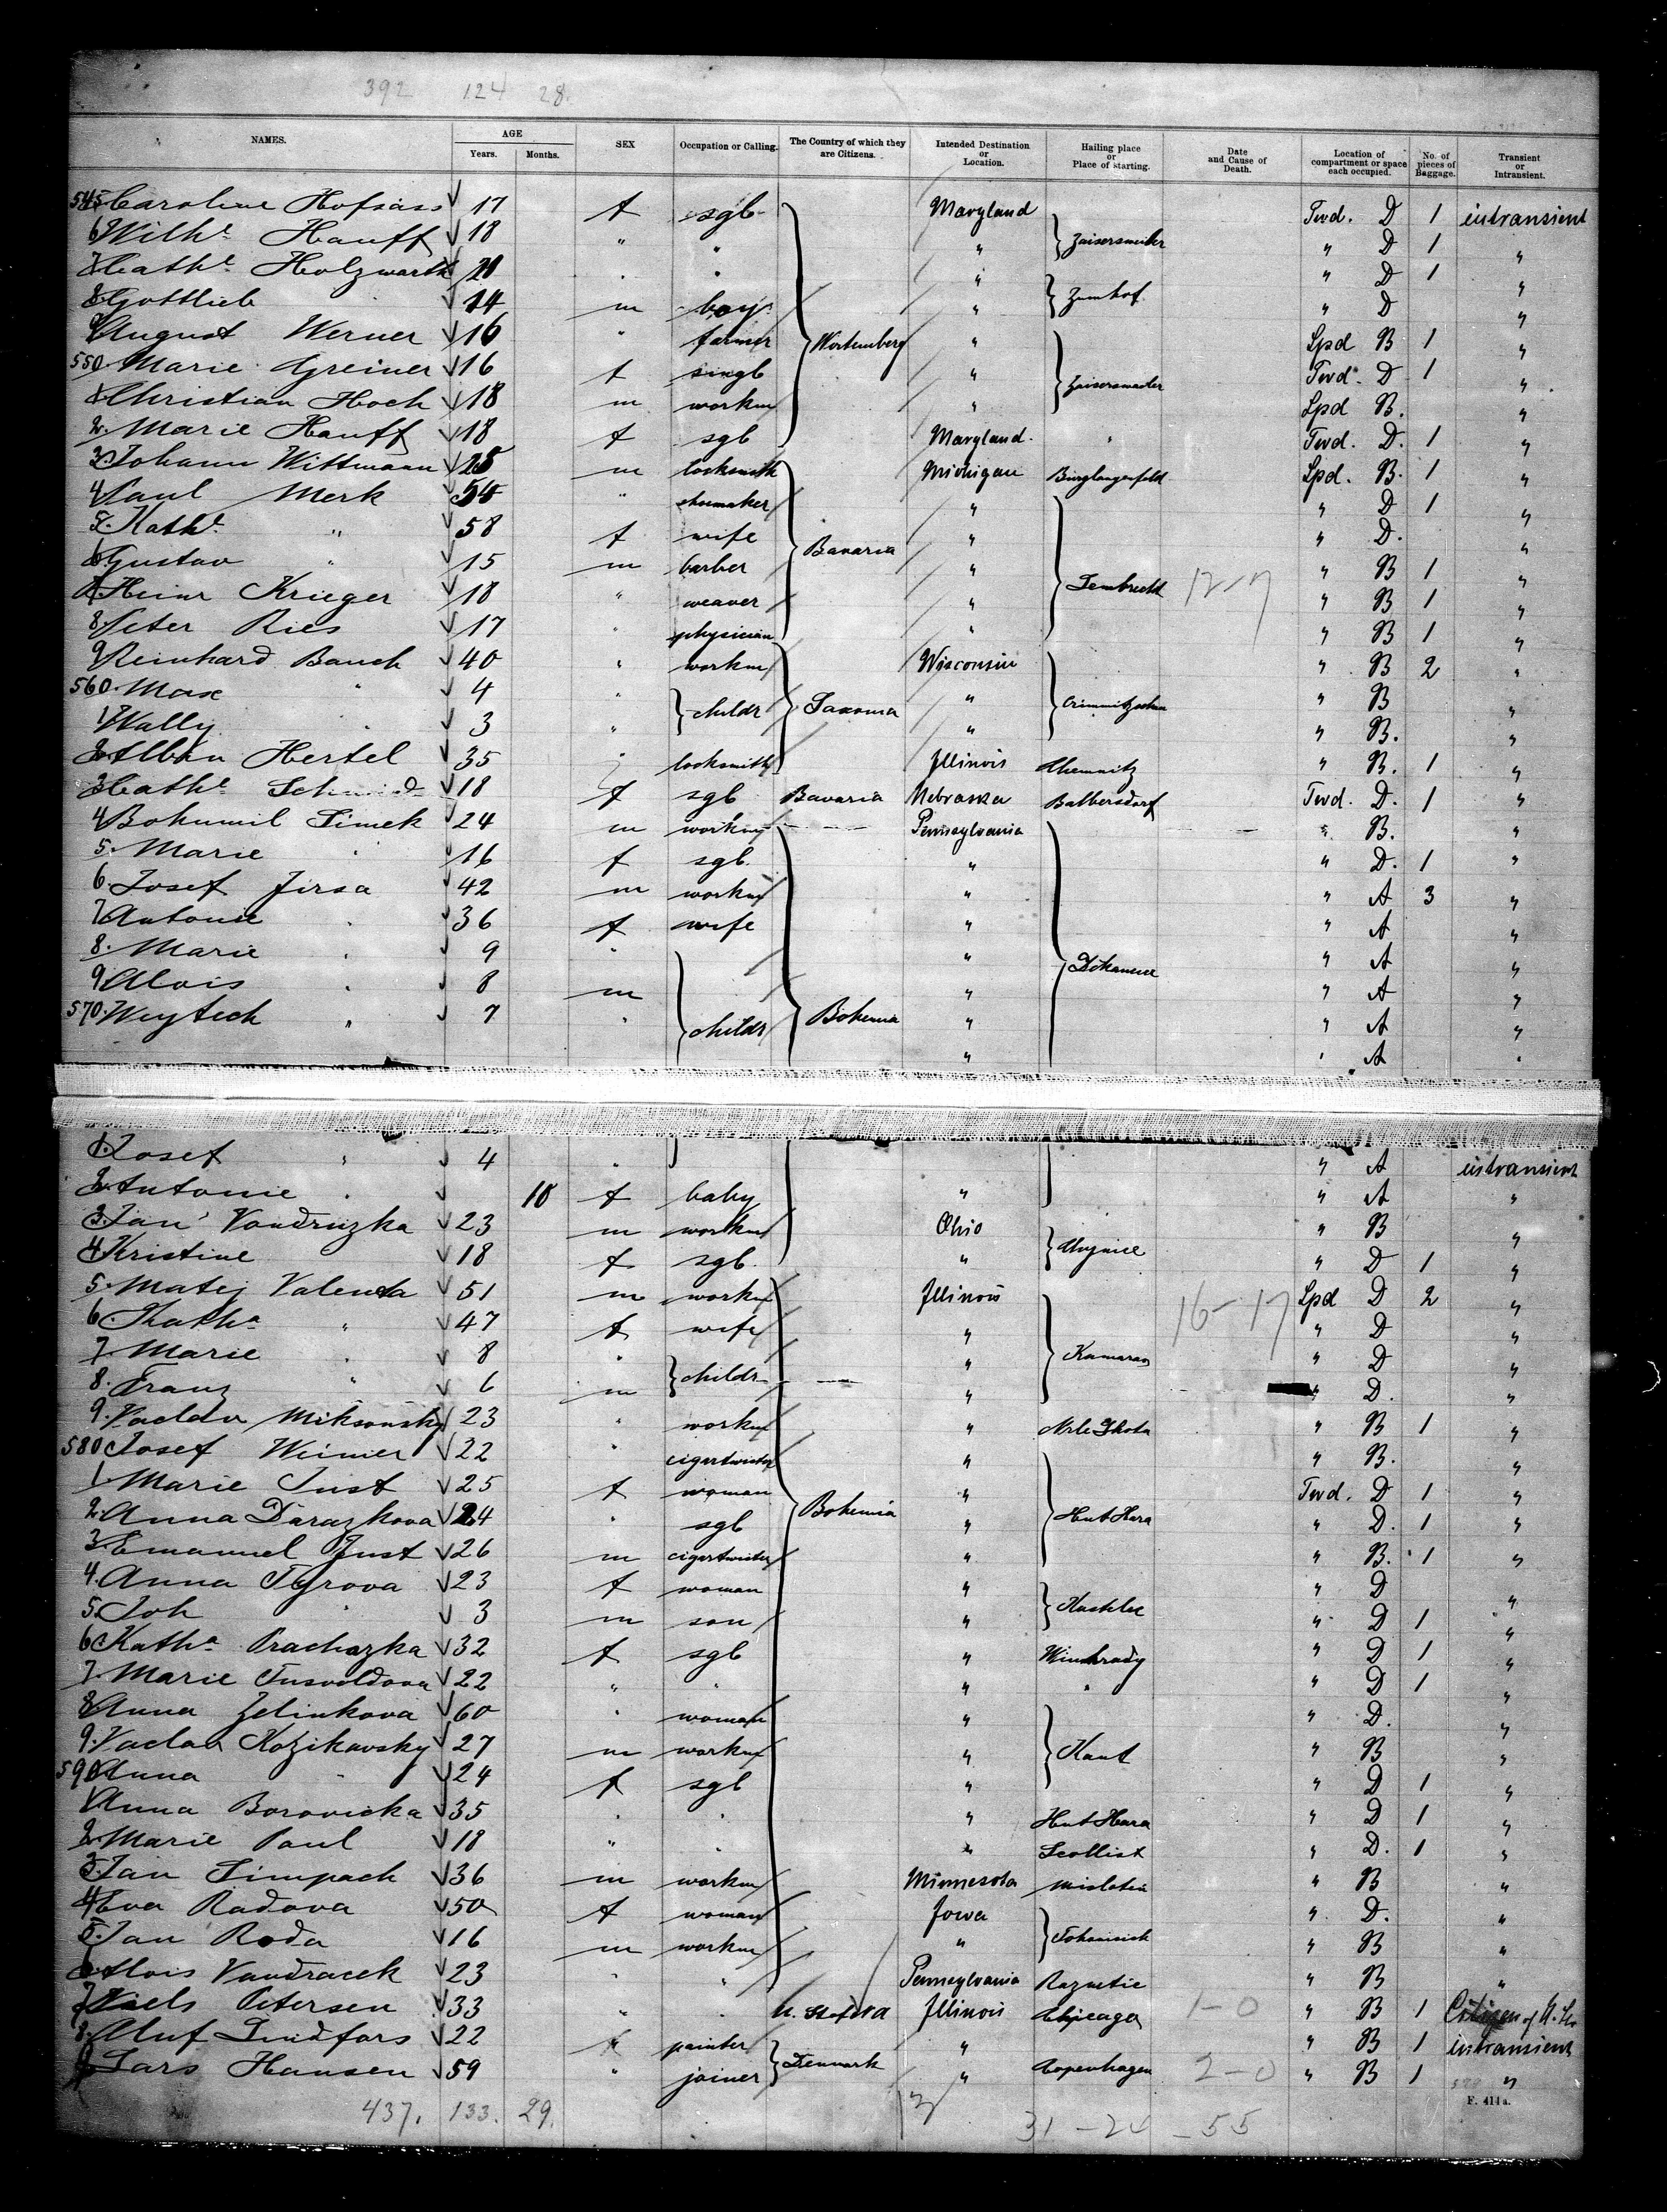 392 124 28.
NAMES. AGE Years. Months. SEX Occupation or Calling. The Country of which they are Citizens. Intended Destination or Location. Hailing place or Place of starting. Date and Cause of Death. Location of compartment or space each occupied. No. of pieces of Baggage. Transient or Intransient.
545 Caroline Hofsäss 17 f sgl. Maryland Twd. D 1 intransient
6 Wilhe Hauff 18 " " " Zaisersweiher " D 1 "
7 Cathe Holzwarth 20 " " " " D 1 "
8 Gottlieb " 14 m boy " Zumhof " D "
9 August Werner 16 " farmer Wortemberg " Lpd B 1 "
550. Marie Greiner 16 f singl " Twd. D 1 "
1 Christian Hoch 18 m workm " Zaisersweiler Lpd B. "
2. Marie Hauff 18 f sgl Maryland. " Twd. D. 1 "
3. Johann Wittmann 25 m locksmith Michigan Burglengenfeld Lpd. B. 1 "
4 Paul Merk 54 " shoemaker " " D 1 "
5. Kathe " 58 f wife " " D. "
6 Gustav " 15 m barber Bavaria " " B 1 "
7. Heinr Krieger 18 " weaver " Lembrecht 12-7 " B 1 "
8. Peter Ries 17 " physician " " B 1 "
9 Reinhard Bauch 40 " workm Wisconsin " B 2 "
560. Max " 4 " childr Saxonia " Crimmitzschau " B "
1 Wally " 3 " " " B. "
2 Albin Hertel 35 " locksmith Illinois Chemnitz " B. 1 "
3 Cathe Schmid 18 f sgl Bavaria Nebraska Balbersdorf Twd. D. 1 "
4 Bohumil Simek 24 m workm Pennsylvania " B. "
5. Marie " 16 f sgl. " " D. 1 "
6. Josef Jirsa 42 m workm " " A 3 "
7 Antonie " 36 f wife " " A "
8. Marie " 9 " " " A "
9 Alois " 8 m " " A "
570. Woytech " 7 " childr Bohemia " " A "
" " A "
1. Josef " 4 " " A intransient
2. Antonie " 10 f baby " " A "
3. Jan Vondruzka 23 m workm Ohio " B "
4 Kristine 18 f sgl. " " D 1 "
5. Matej Valenta 51 m workm Illinois 16-17 Lpd D 2 "
6 Katha " 47 f wife " " D "
7. Marie " 8 " childr " " D "
8. Franz " 6 m " " D. "
9. Vaclav Miksonsky 23 " workm " " B 1 "
580 Josef Weimer 22 " cigartwister " " B. "
1. Marie Just 25 f woman " Twd. D 1 "
2. Anna Darazkova 24 " sgl Bohemia " " D. 1 "
3. Emanuel Just 26 m cigartwister " " B. 1 "
4. Anna Tyrova 23 f woman " " D "
5. Joh " 3 m son " " D 1 "
6 Katha Prachazka 32 f sgl " " D 1 "
7. Marie 22 " " " " " D 1 "
8 Anna Zelinkova 60 " woman " " D. "
9. Vaclav Kozikavsky 27 m workm " Kaut " B "
590 Anna " 24 f sgl " " D 1 "
1 Anna Borovicka 35 " " " Hut Hara " D 1 "
2. Marie Paul 18 " " " " D. 1 "
3. Jan Simpach 36 m workm Minnesota " B "
4 Eva Radova 50 f woman Iowa " D. "
5. Jan Roda 16 m workm " " B "
6 Alois Vondracek 23 " " Pennsylvania " B "
7 Niels Petersen 33 " " Illinois Chicago 1-0 " B 1 Citizen of
8. Oluf Lindfors 22 " painter Denmark " " B 1 intransient
9 Lars Hansen 59 " joiner " Copenhagen 2-0 " B 1 "
437. 133. 29. 31 -24 -55 F. 411a.